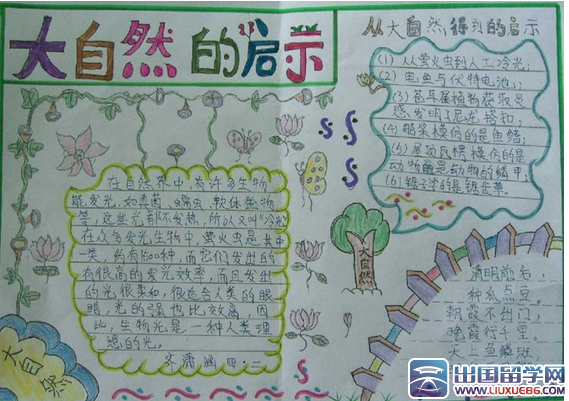 大自然的启示
从大自然得到的启示
(1) 从萤火虫到人工冷光;
(2) 电鱼与伏特电池;
(3) 苍耳属植物获取灵
感发明尼龙搭扣;
(4) 船桨模仿的是鱼鳍;
(5) 屋顶瓦楞模仿的是
动物的鳞甲;
在自然界中,有许多生物
能发光,如
软体动物
等,这些光都不发热,所以又叫“冷光
在众多发光生物中,萤火虫是其中
一类,约有1500种,而它们发出的
有很高的发光效率,而且发出
的光很柔和,很适合人类的眼
睛,光的强也比效高,因
此,生物光是一种人类理
想的光。
四·二
大自然
大自然
清明前后,
种瓜点豆。
朝霞不出门,
晚霞行千里。
天上鱼鳞斑
出国留学网
WWW.LIUXUE86.COM